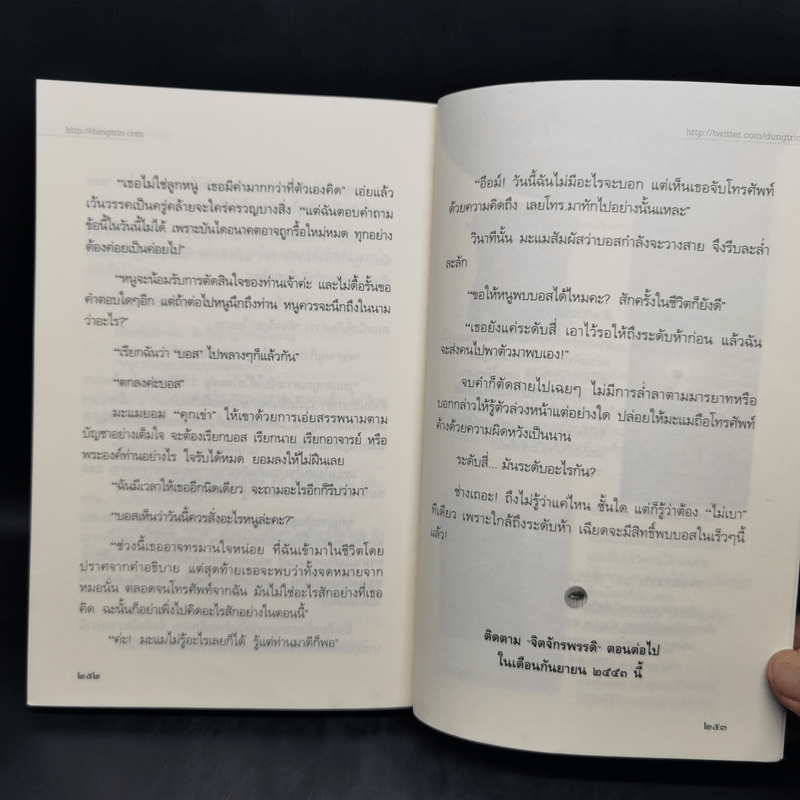 http://dungtrin.com
“เธอไม่ใช่ลูกหนู เธอมีค่ามากกว่าที่ตัวเองคิด” เอ่ยแล้ว
เว้นวรรคเป็นครู่คล้ายจะใคร่ครวญบางสิ่ง “แต่ฉันตอบคำถาม
ข้อนี้ในวันนี้ไม่ได้ เพราะบันไดอนาคตอาจถูกรื้อใหม่หมด ทุกอย่าง
ต้องค่อยเป็นค่อยไป”
“หนูจะน้อมรับการตัดสินใจของท่านเจ้าค่ะ และไม่ดื้อรั้นขอ
คำตอบใดๆอีก แต่ถ้าต่อไปหนูนึกถึงท่าน หนูควรจะนึกถึงในนาม
ว่าอะไร?”
“เรียกฉันว่า ‘บอส’ ไปพลางๆก็แล้วกัน”
“ตกลงค่ะบอส”
มะแมยอม “คุกเข่า” ให้เขาด้วยการเอ่ยสรรพนามตาม
บัญชาอย่างเต็มใจ จะต้องเรียกบอส เรียกนาย เรียกอาจารย์ หรือ
พระองค์ท่านอย่างไร ใจรับได้หมด ยอมลงให้ไม่ฝืนเลย
“ฉันมีเวลาให้เธออีกนิดเดียว จะถามอะไรอีกก็รีบว่ามา”
“บอสเห็นว่าวันนี้ควรสั่งอะไรหนูล่ะคะ?”
“ช่วงนี้เธออาจทรมานใจหน่อย ที่ฉันเข้ามาในชีวิตโดย
ปราศจากคำอธิบาย แต่สุดท้ายเธอจะพบว่าทั้งจดหมายจาก
หมอนั่น ตลอดจนโทรศัพท์จากฉัน มันไม่ใช่อะไรสักอย่างที่เธอ
คิด ฉะนั้นก็อย่าเพิ่งไปคิดอะไรสักอย่างในตอนนี้”
“ค่ะ! มะแมไม่รู้อะไรเลยก็ได้ รู้แต่ท่านมาดีก็พอ”
๒๕๒
http://twitter.com/dungtrin
“อือม์! วันนี้ฉันไม่มีอะไรจะบอก แต่เห็นเธอจับโทรศัพท์
ด้วยความคิดถึง เลยโทร.มาทักไปอย่างนั้นแหละ”
วินาทีนั้น มะแมสัมผัสว่าบอสกำลังจะวางสาย จึงรีบละล่ำ
ละลัก
“ขอให้หนูพบบอสได้ไหมคะ? สักครั้งในชีวิตก็ยังดี”
“เธอยังแค่ระดับสี่ เอาไว้รอให้ถึงระดับห้าก่อน แล้วฉัน
จะส่งคนไปพาตัวมาพบเอง!”
จบคำก็ตัดสายไปเฉยๆ ไม่มีการล่ำลาตามมารยาทหรือ
บอกกล่าวให้รู้ตัวล่วงหน้าแต่อย่างใด ปล่อยให้มะแมถือโทรศัพท์
ค้างด้วยความผิดหวังเป็นนาน
ระดับสี่... มันระดับอะไรกัน?
ช่างเถอะ! ถึงไม่รู้ว่าแค่ไหน ชั้นใด แต่ก็รู้ว่าต้อง “ไม่เบา”
ทีเดียว เพราะใกล้ถึงระดับห้า เฉียดจะมีสิทธิ์พบบอสในเร็วๆนี้
แล้ว!
ติดตาม “จิตจักรพรรดิ” ตอนต่อไป
ในเดือนกันยายน ๒๕๕๓ นี้
๒๕๓